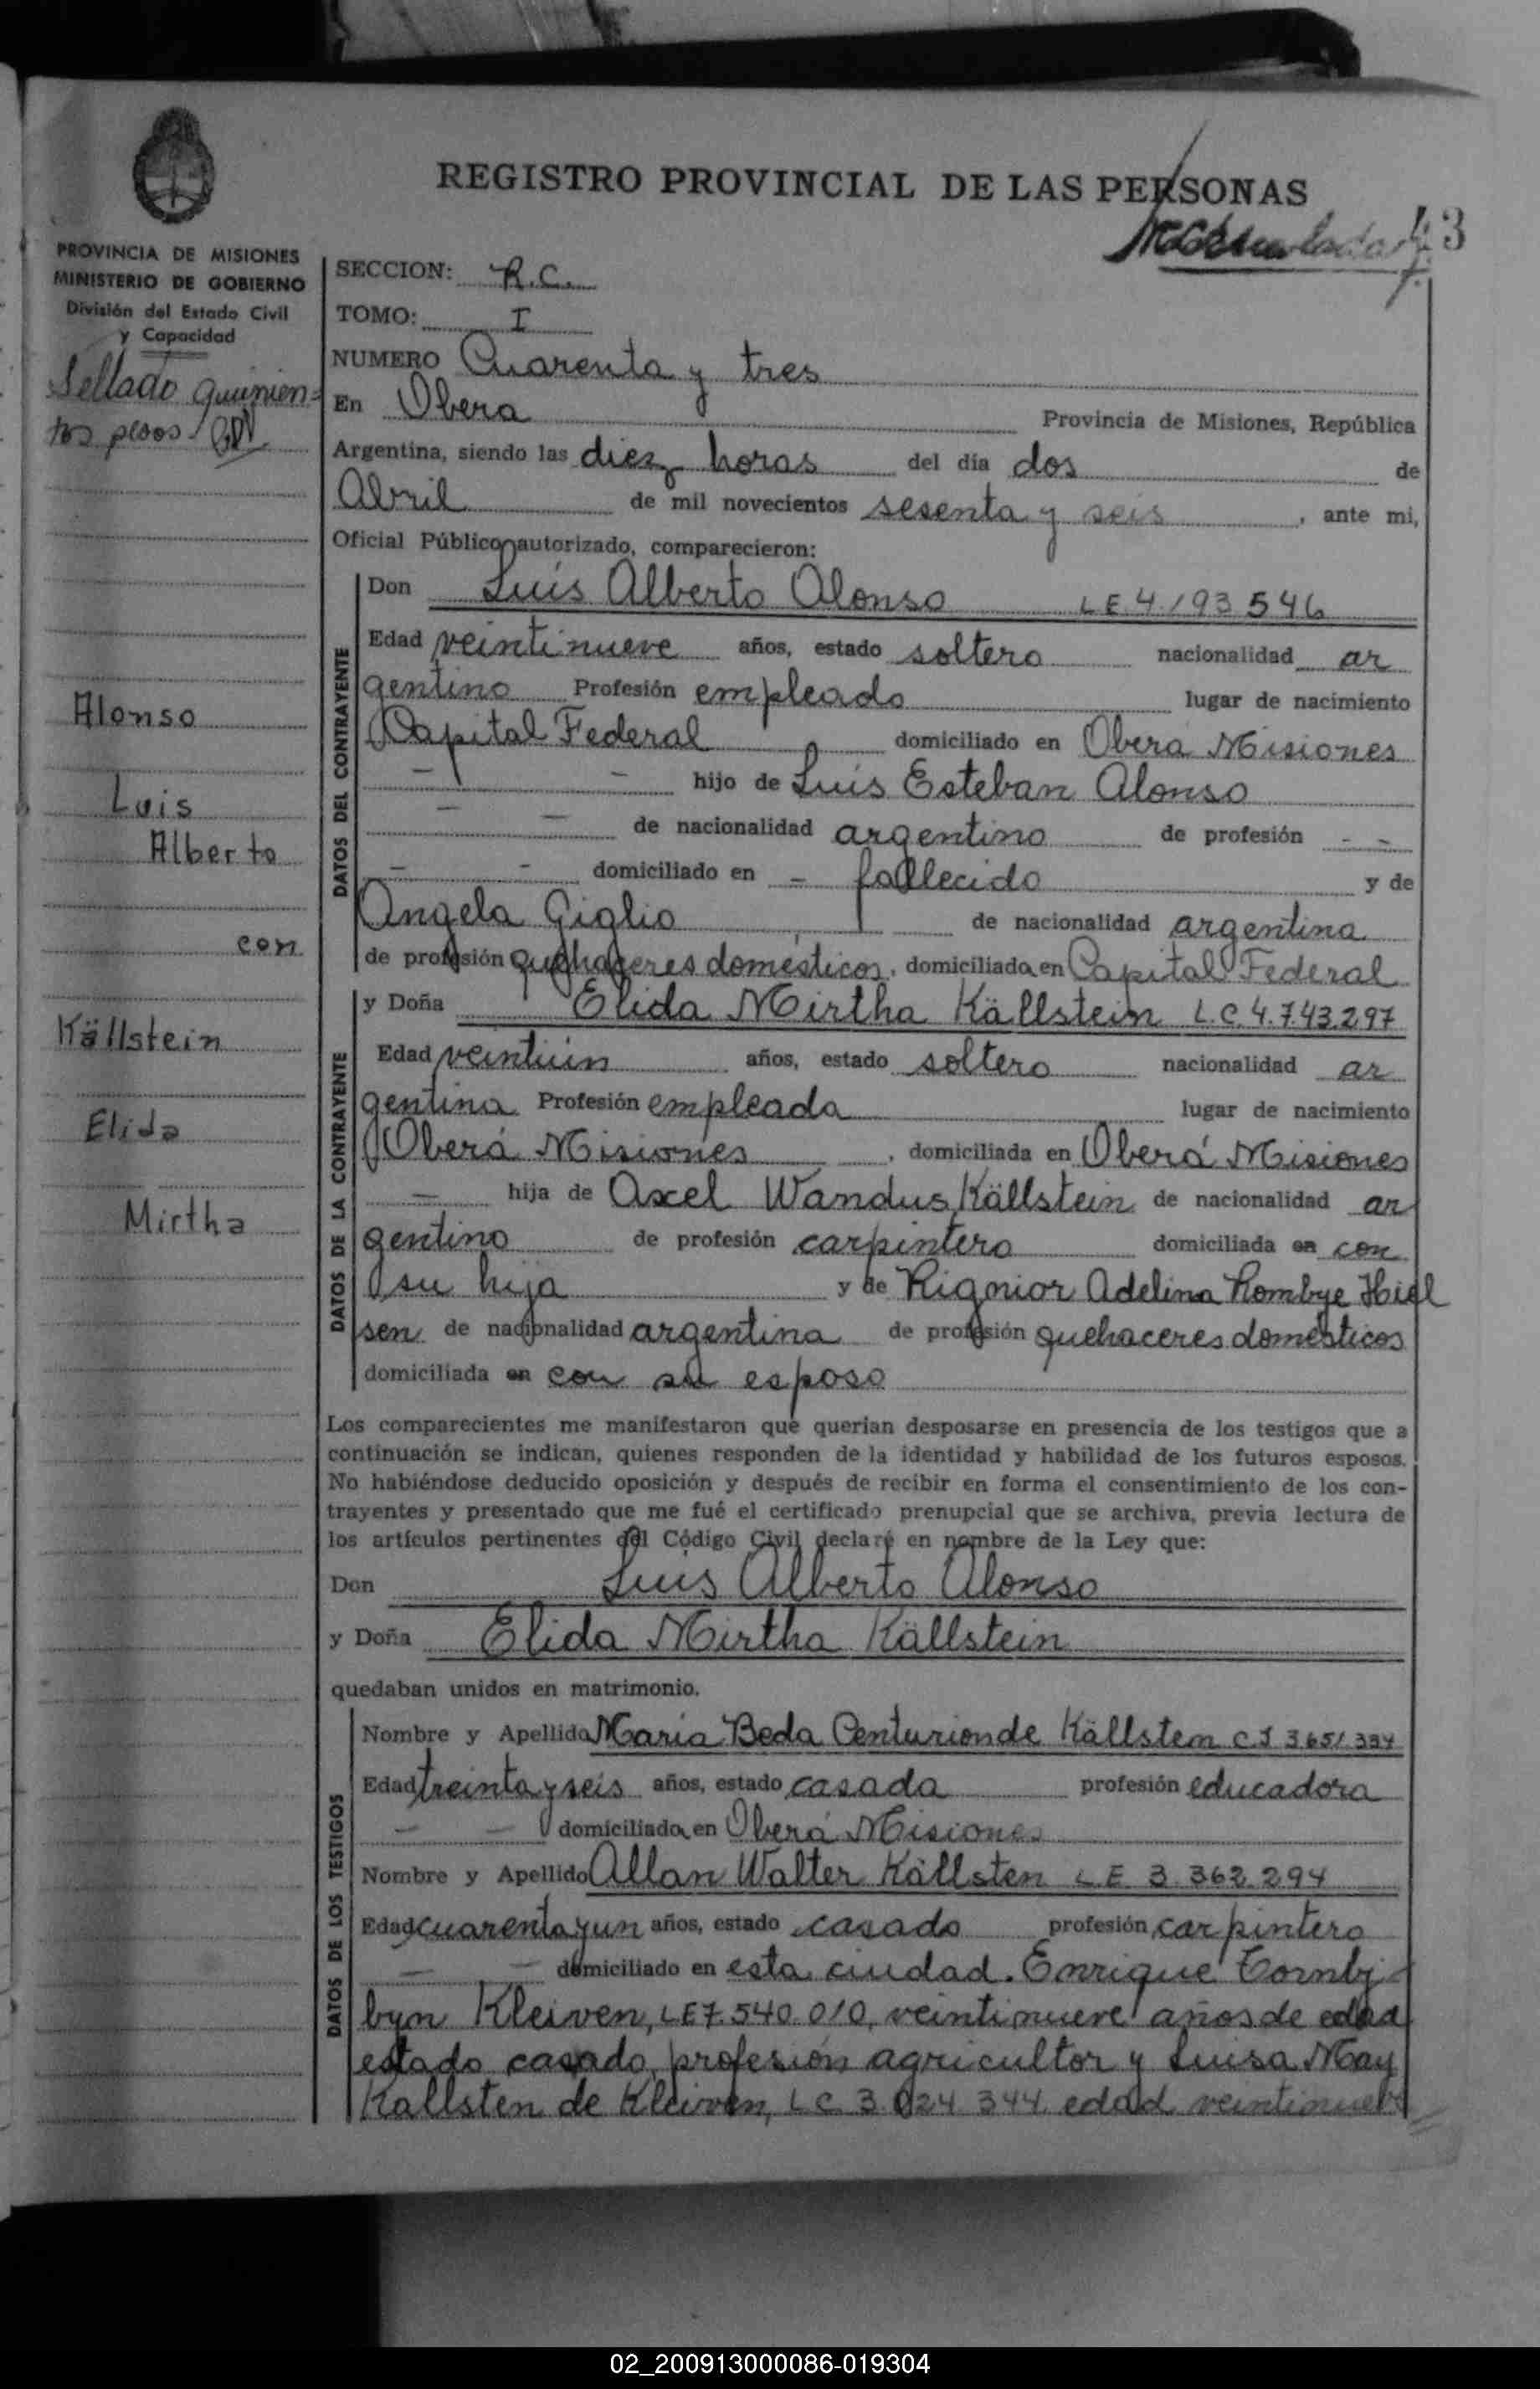 REGISTRO PROVINCIAL DE LAS PERSONAS
43
PROVINCIA DE MISIONES
MINISTERIO DE GOBIERNO
División del Estado Civil
y Capacidad
Sellado quinien=
tos pesos
Alonso
Luis
Alberto
con
Källstein
Elida
Mirtha
SECCION: R.C.
TOMO: I
NUMERO Cuarenta y tres
En Obera Provincia de Misiones, República
Argentina, siendo las diez horas del día dos de
Abril de mil novecientos sesenta y seis, ante mi,
Oficial Público autorizado, comparecieron:
DATOS DEL CONTRAYENTE
Don Luis Alberto Alonso LE 4.193.546
Edad veintinueve años, estado soltero nacionalidad ar
gentino Profesión empleado lugar de nacimiento
Capital Federal domiciliado en Obera Misiones
- - hijo de Luis Esteban Alonso
- - de nacionalidad argentino de profesión - -
- - domiciliado en - fallecido y de
Angela Giglio de nacionalidad argentina
de profesión quehaceres domésticos, domiciliada en Capital Federal
DATOS DE LA CONTRAYENTE
y Doña Elida Mirtha Källstein L.C. 4.743.297
Edad veintiún años, estado soltero nacionalidad ar
gentina Profesión empleada lugar de nacimiento
Oberá Misiones, domiciliada en Oberá Misiones
- hija de Axel Wandus Källstein de nacionalidad ar
gentino de profesión carpintero domiciliada en con
su hija y de Rignior Adelina Rombye Hiel
sen de nacionalidad argentina de profesión quehaceres domésticos
domiciliada en con su esposo
Los comparecientes me manifestaron que querian desposarse en presencia de los testigos que a
continuación se indican, quienes responden de la identidad y habilidad de los futuros esposos.
No habiéndose deducido oposición y después de recibir en forma el consentimiento de los con-
trayentes y presentado que me fué el certificado prenupcial que se archiva, previa lectura de
los artículos pertinentes del Código Civil declaré en nombre de la Ley que:
Don Luis Alberto Alonso
y Doña Elida Mirtha Källstein
quedaban unidos en matrimonio.
DATOS DE LOS TESTIGOS
Nombre y Apellido Maria Beda Centurion de Källsten C.I 3.651.334
Edad treinta y seis años, estado casada profesión educadora
- - domiciliada en Oberá Misiones
Nombre y Apellido Allan Walter Källsten LE 3.362.294
Edad cuarenta y un años, estado casado profesión carpintero
- - domiciliado en esta ciudad. Enrique Tornbj
byn Kleiven, LE 7.540.010, veintinueve años de edad
estado casado, profesión agricultor y Luisa May
Kallsten de Kleiven, LC 3.024.344 edad veintinueve
02_200913000086-019304